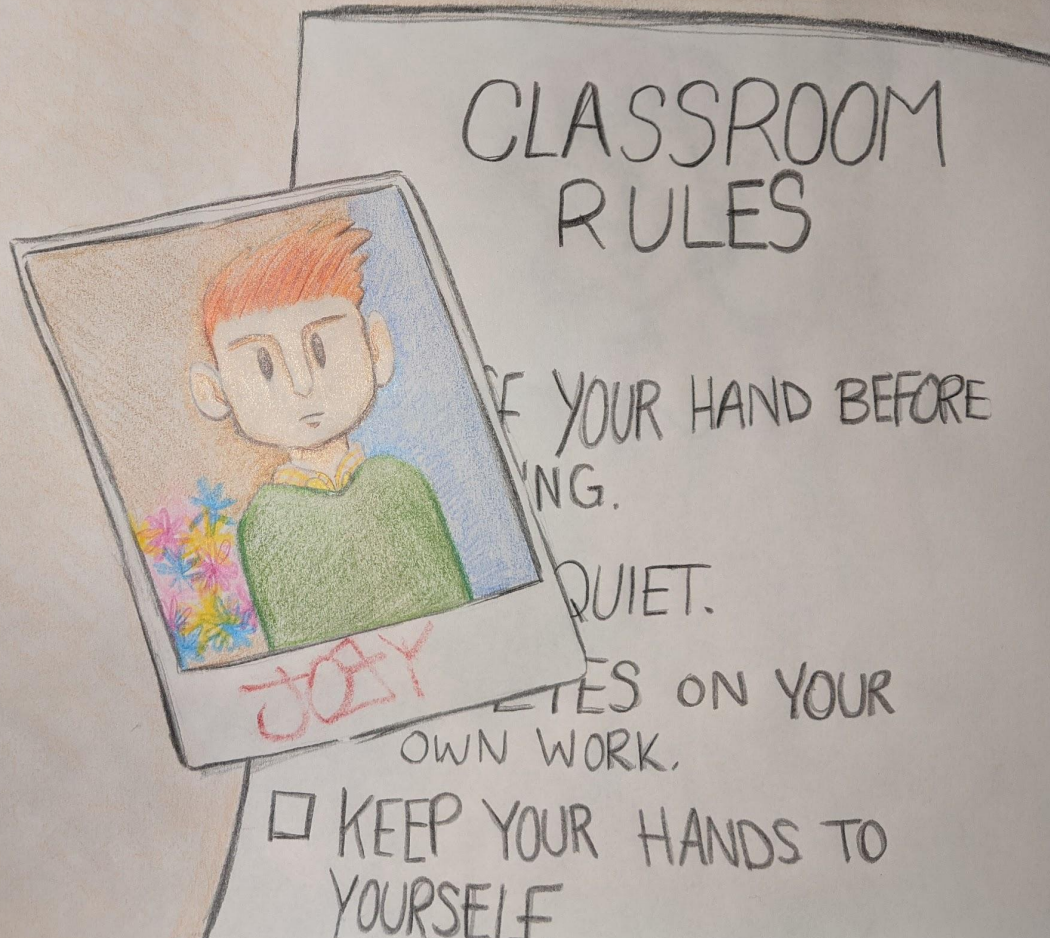 CLASSROOM
RULES
YOUR HAND BEFORE
NG.
QUIET.
EYES ON YOUR
OWN WORK.
KEEP YOUR HANDS TO
YOURSELF
JOEY